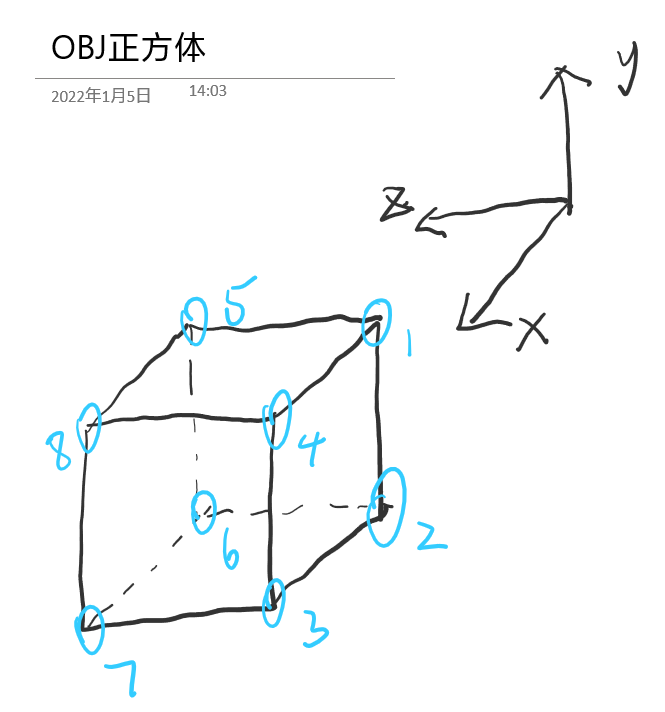 OBJ正方体
2022年1月5日 14:03
y
z
x
5
1
8
4
6
2
3
7